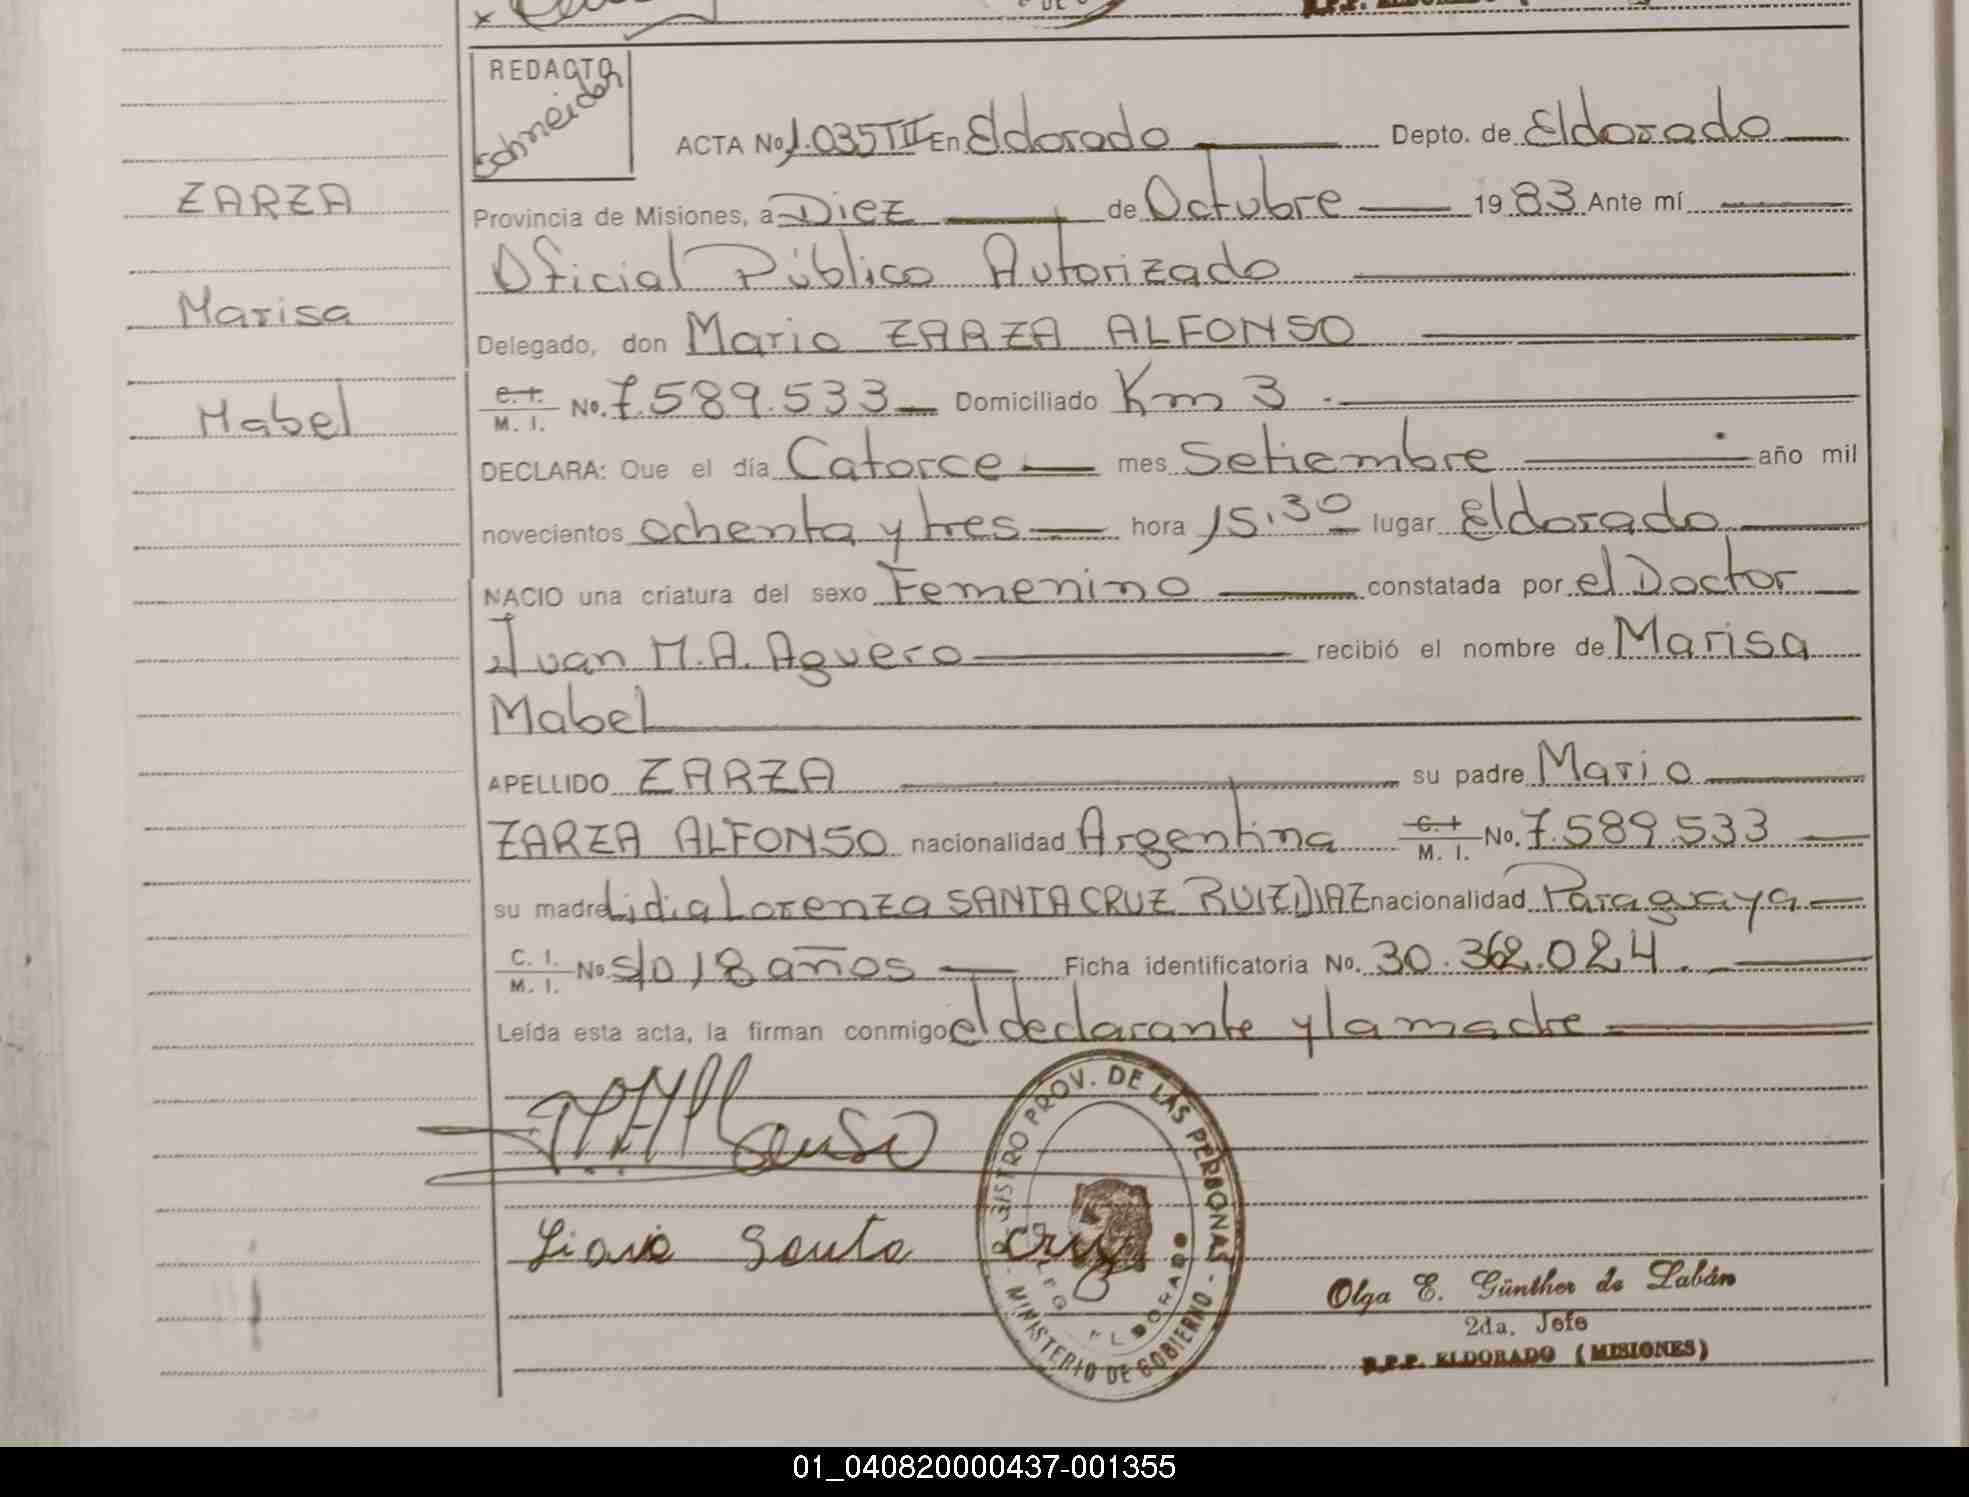 REDACTO
Schneider
ACTA No 1.035 T II En Eldorado Depto. de Eldorado
ZARZA
Provincia de Misiones, a Diez de Octubre 19 83 Ante mí
Oficial Público Autorizado
Marisa
Delegado, don Mario ZARZA ALFONSO
Mabel
C. I.
M. I. No. 7.589.533 Domiciliado Km 3
DECLARA: Que el día Catorce mes Setiembre año mil
novecientos ochenta y tres hora 15.30 lugar Eldorado
NACIO una criatura del sexo Femenino constatada por el Doctor
Juan M.A. Aguero recibió el nombre de Marisa
Mabel
APELLIDO ZARZA su padre Mario
ZARZA ALFONSO nacionalidad Argentina C. I. M. I. No. 7.589.533
su madre Lidia Lorenza SANTA CRUZ RUIZ DIAZ nacionalidad Paraguaya
C. I.
M. I. No. s/D 18 años Ficha identificatoria No. 30.362.024
Leída esta acta, la firman conmigo el declarante y la madre
REGISTRO PROV. DE LAS PERSONAS
MINISTERIO DE GOBIERNO
ELDORADO
Santa Cruz
Olga E. Günther de Labán
2da. Jefe
R.P.P. ELDORADO (MISIONES)
01_040820000437-001355